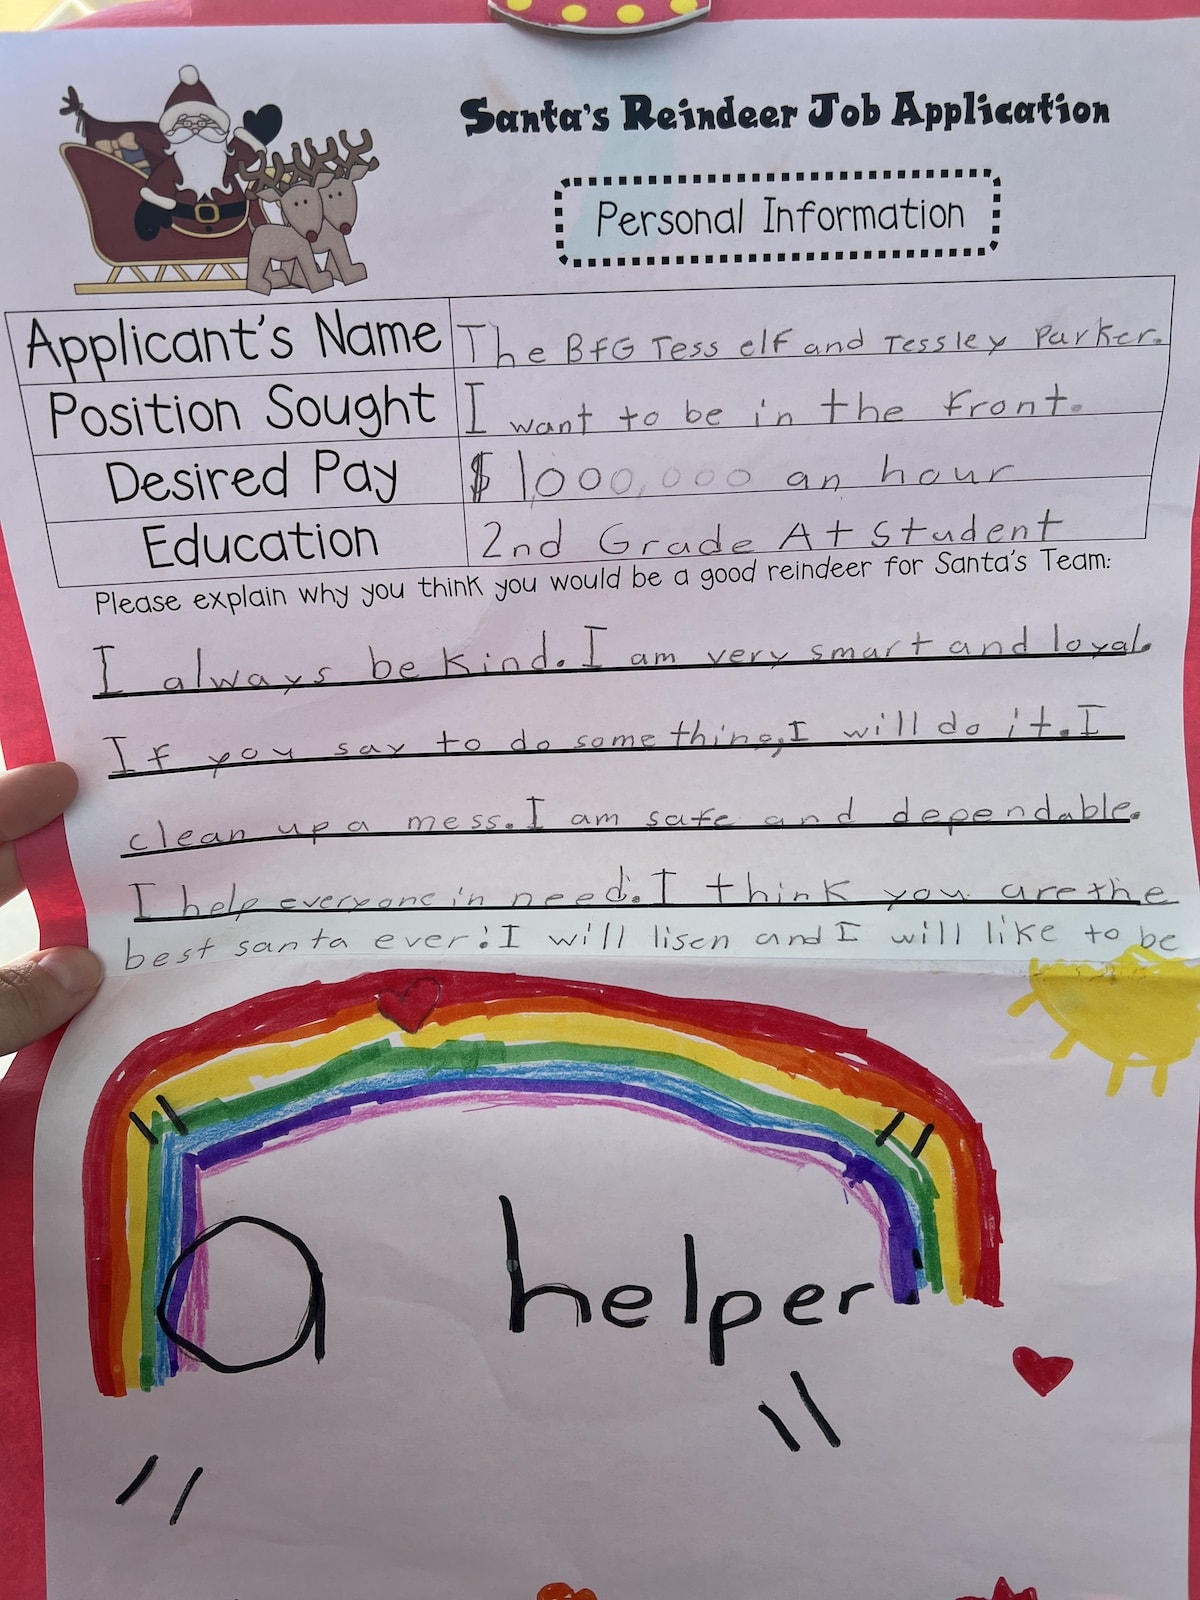 Santa's Reindeer Job Application
Personal Information
Applicant's Name The BfG Tess elf and Tessley Parker.
Position Sought I want to be in the front.
Desired Pay $1,000,000 an hour
Education 2nd Grade A+ Student
Please explain why you think you would be a good reindeer for Santa's Team:
I always be kind. I am very smart and loyal.
If you say to do something, I will do it. I
clean up a mess. I am safe and dependable.
I help everyone in need. I think you are the
best santa ever! I will lisen and I will like to be
a helper